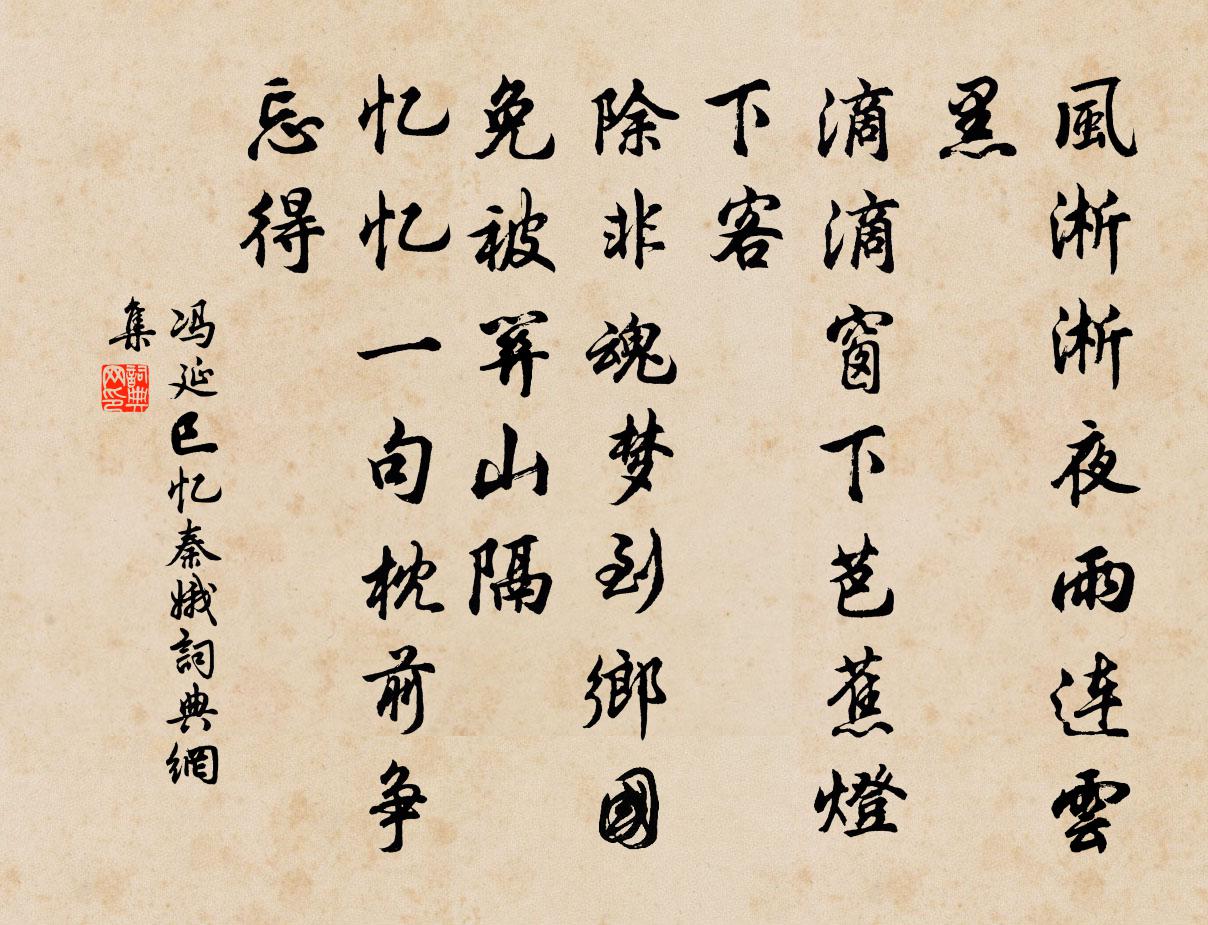 風淅淅夜雨连雲
黑
滴滴窗下芭蕉燈
下客
除非魂梦到鄉國
免被關山隔
忆忆一句枕前争
忘得
冯延巳忆秦娥詞典網
集
詞典
网印